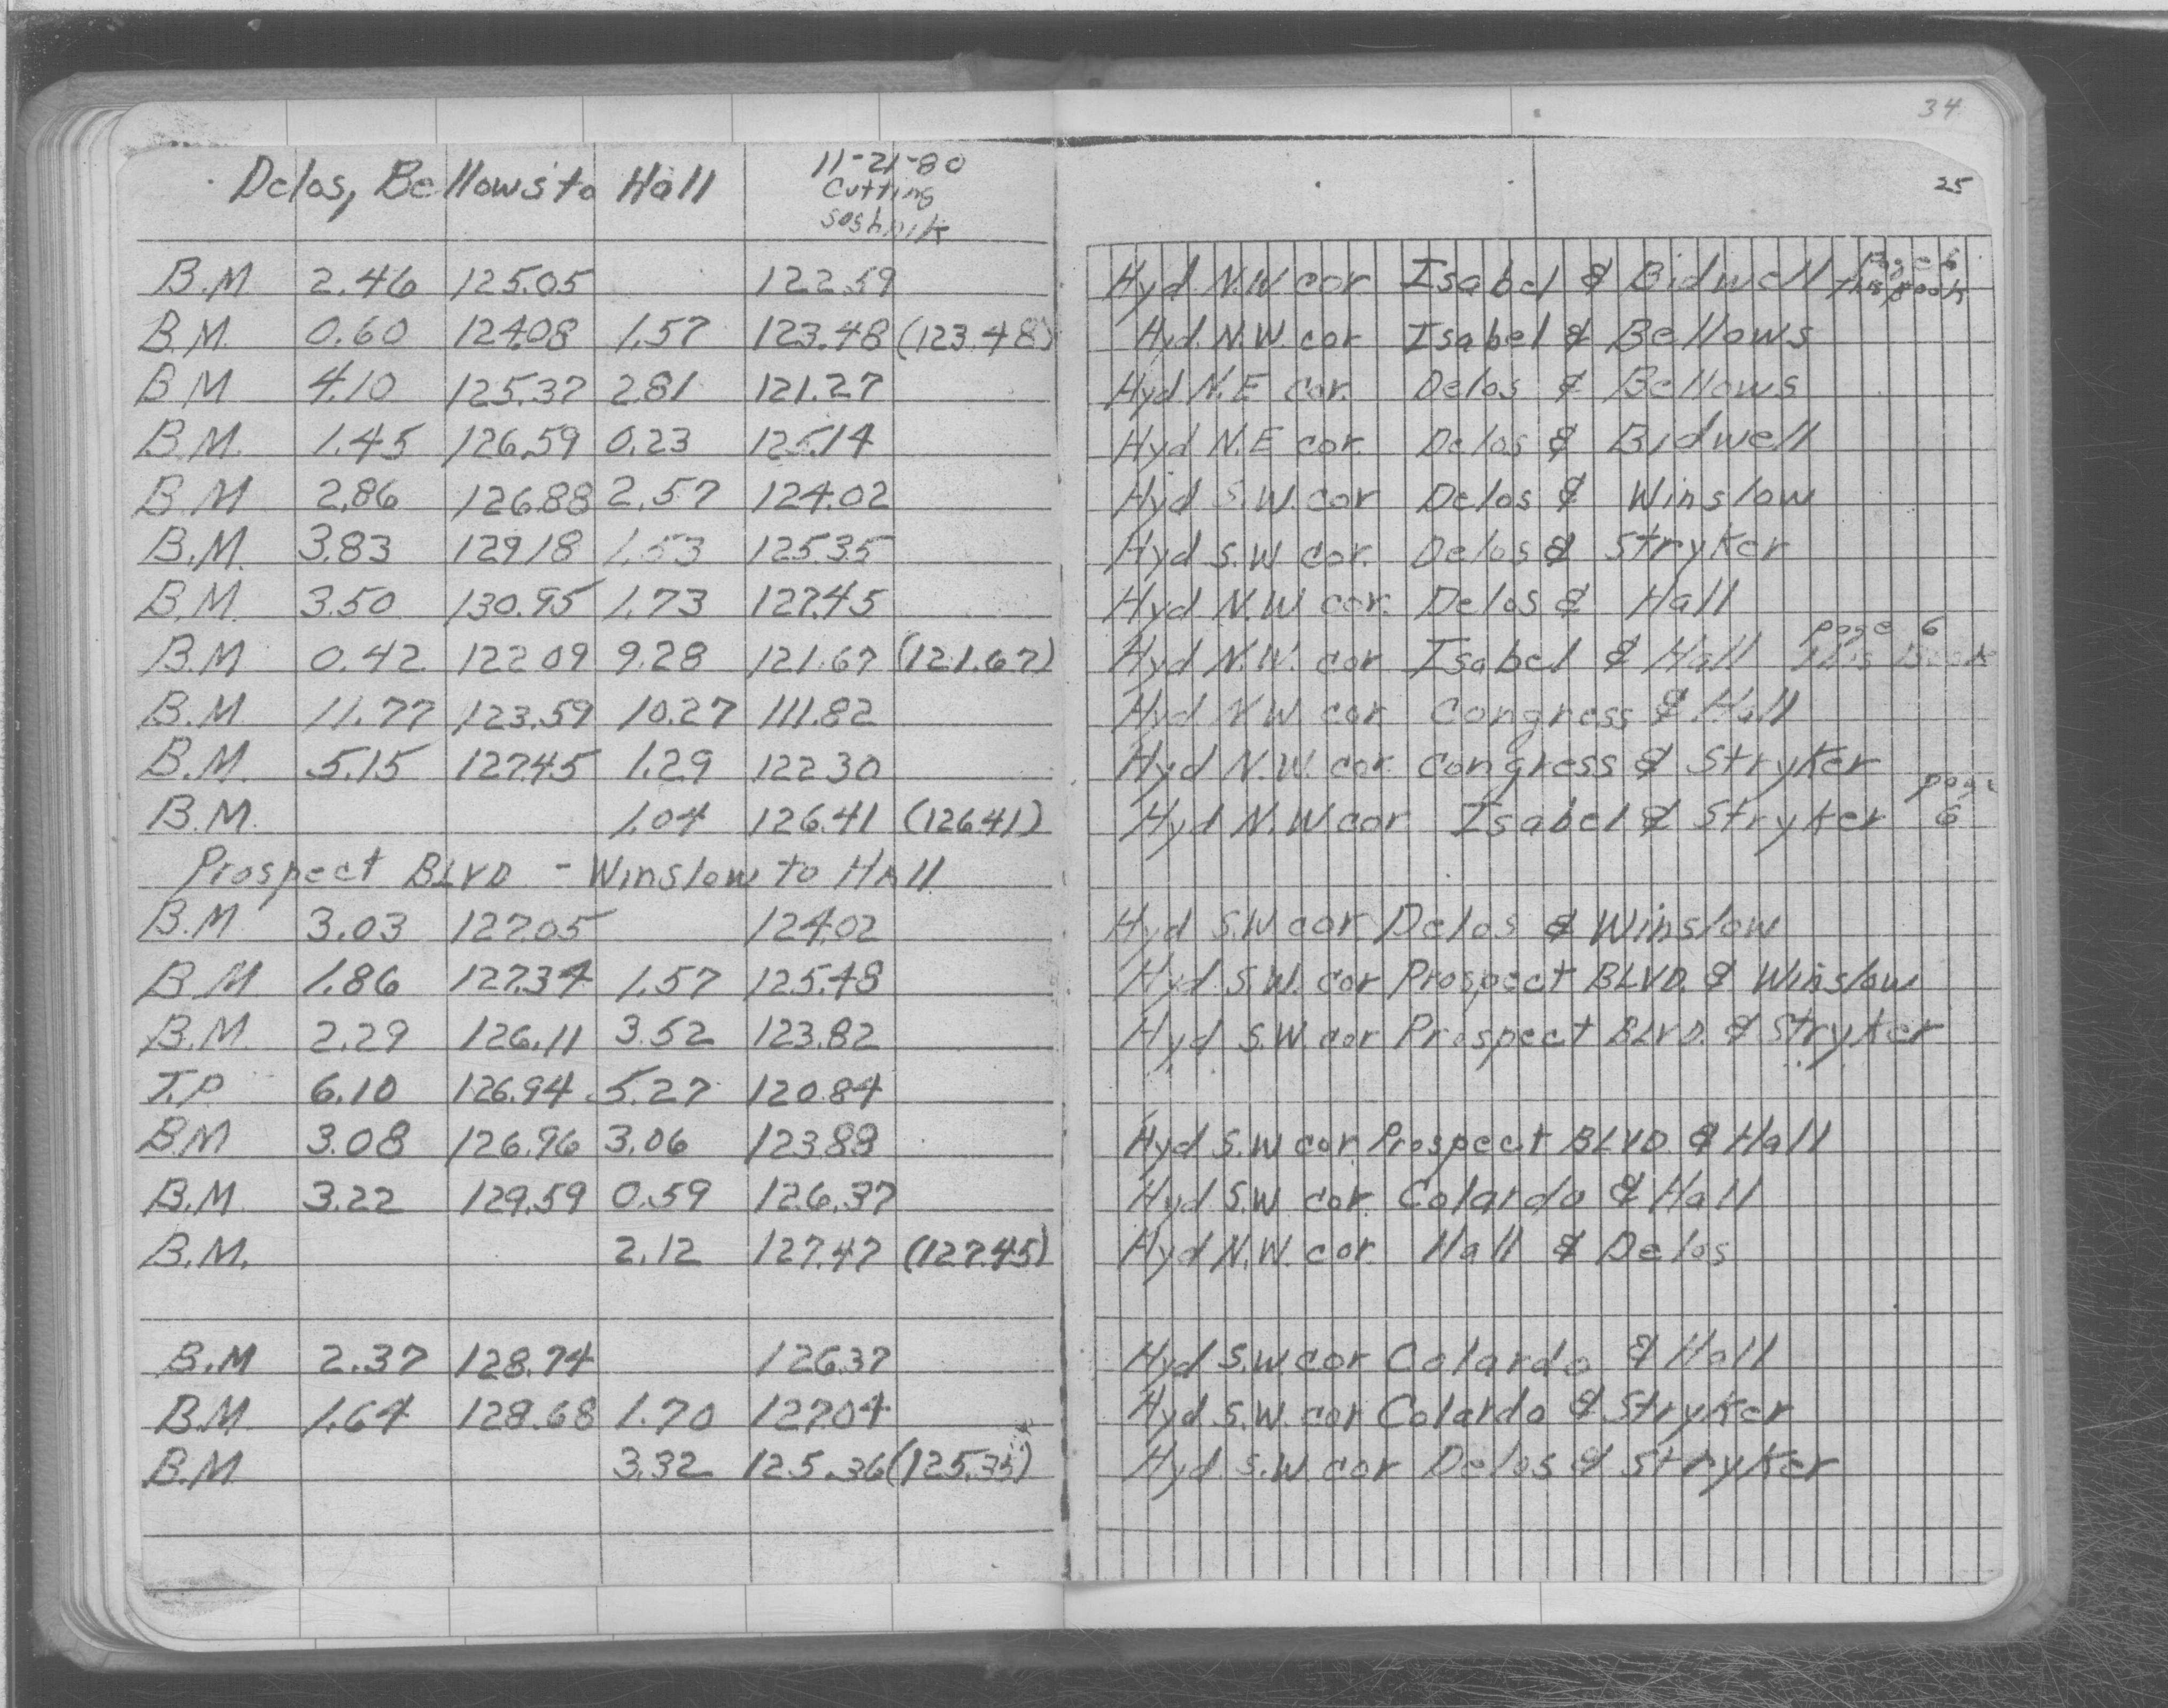 34
25
Delos, Bellows to Hall 11-21-80
Cutting
Soshnik
B.M 2.46 125.05 122.59 Hyd. N.W. cor. Isabel & Bidwell Page 6
this book
B.M. 0.60 124.08 1.57 123.48 (123.48) Hyd. N.W. cor. Isabel & Bellows
B M 4.10 125.37 2.81 121.27 Hyd N.E cor. Delos & Bellows
B M. 1.45 126.59 0.23 125.14 Hyd N.E cor. Delos & Bidwell
B.M 2.86 126.88 2.57 124.02 Hyd S.W. cor Delos & Winslow
B.M. 3.83 129.18 1.53 125.35 Hyd S.W cor. Delos & Stryker
B.M. 3.50 130.95 1.73 127.45 Hyd N.W cor. Delos & Hall
B.M 0.42 122.09 9.28 121.67 (121.67) Hyd N.W. cor Isabel & Hall page 6
this Book
B.M. 11.77 123.59 10.27 111.82 Hyd N.W. cor Congress & Hall
B.M. 5.15 127.45 1.29 122.30 Hyd N.W. cor. Congress & Stryker
B.M. 1.04 126.41 (126.41) Hyd N.W cor Isabel & Stryker page
6
Prospect BLVD - Winslow to HAll
B.M 3.03 127.05 124.02 Hyd S.W cor. Delos & Winslow
B M 1.86 127.34 1.57 125.48 Hyd. S.W. cor Prospect BLVD. & Winslow
B.M. 2.29 126.11 3.52 123.82 Hyd S.W. cor Prospect BLVD. & Stryker
T.P 6.10 126.94 5.27 120.84
BM 3.08 126.96 3.06 123.88 Hyd S.W cor. Prospect BLVD. & Hall
B.M. 3.22 129.59 0.59 126.37 Hyd S.W. cor. Colardo & Hall
B.M. 2.12 127.47 (127.45) Hyd N.W. cor. Hall & Delos
B.M 2.37 128.74 126.37 Hyd S.W. cor Colardo & Hall
B.M 1.64 128.68 1.70 127.04 Hyd S.W. cor. Colardo & Stryker
B.M 3.32 125.36 (125.35) Hyd. S.W cor Delos & Stryker